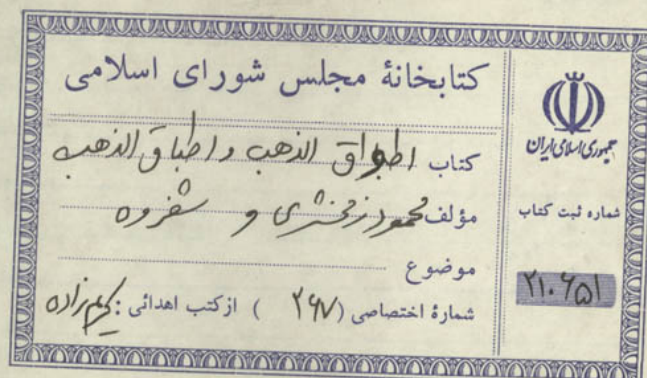 کتابخانهٔ مجلس شورای اسلامی
کتاب اطواق الذهب و اطباق الذهب
مؤلف محمود زمخشری و شفروه
موضوع
شمارهٔ اختصاصی ( ۲۶۷ ) از کتب اهدائی : کریم‌زاده
جمهوری اسلامی ایران
شماره ثبت کتاب
۲۱۰۶۵۱